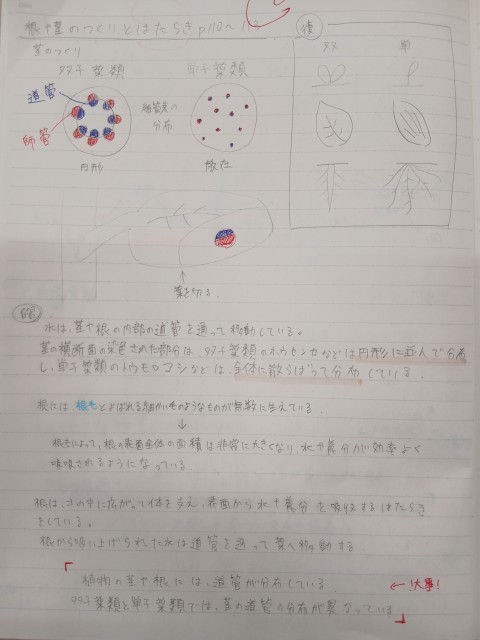 根や茎のつくりとはたらき p110〜113
復
茎のつくり
双子葉類
単子葉類
双
単
道管
師管
維管束の
分布
円形
散在
↑
葉を切る
水は、茎や根の内部の道管を通って移動している。
茎の横断面の染色された部分は、双子葉類のホウセンカなどは円形に並んで分布
し、単子葉類のトウモロコシなどは、全体に散らばって分布している。
根には根毛とよばれる細かい毛のようなものが無数に生えている。
↓
根毛によって、根の表面全体の面積は非常に大きくなり、水や養分が効率よく
吸収されるようになっている。
根は、土の中に広がって体を支え、表面から水や養分を吸収するはたらき
をしている。
根から吸い上げられた水は道管を通って葉へ移動する
「植物の茎や根には、道管が分布している。
←大事!
双子葉類と単子葉類では、茎の道管の分布が異なっている」